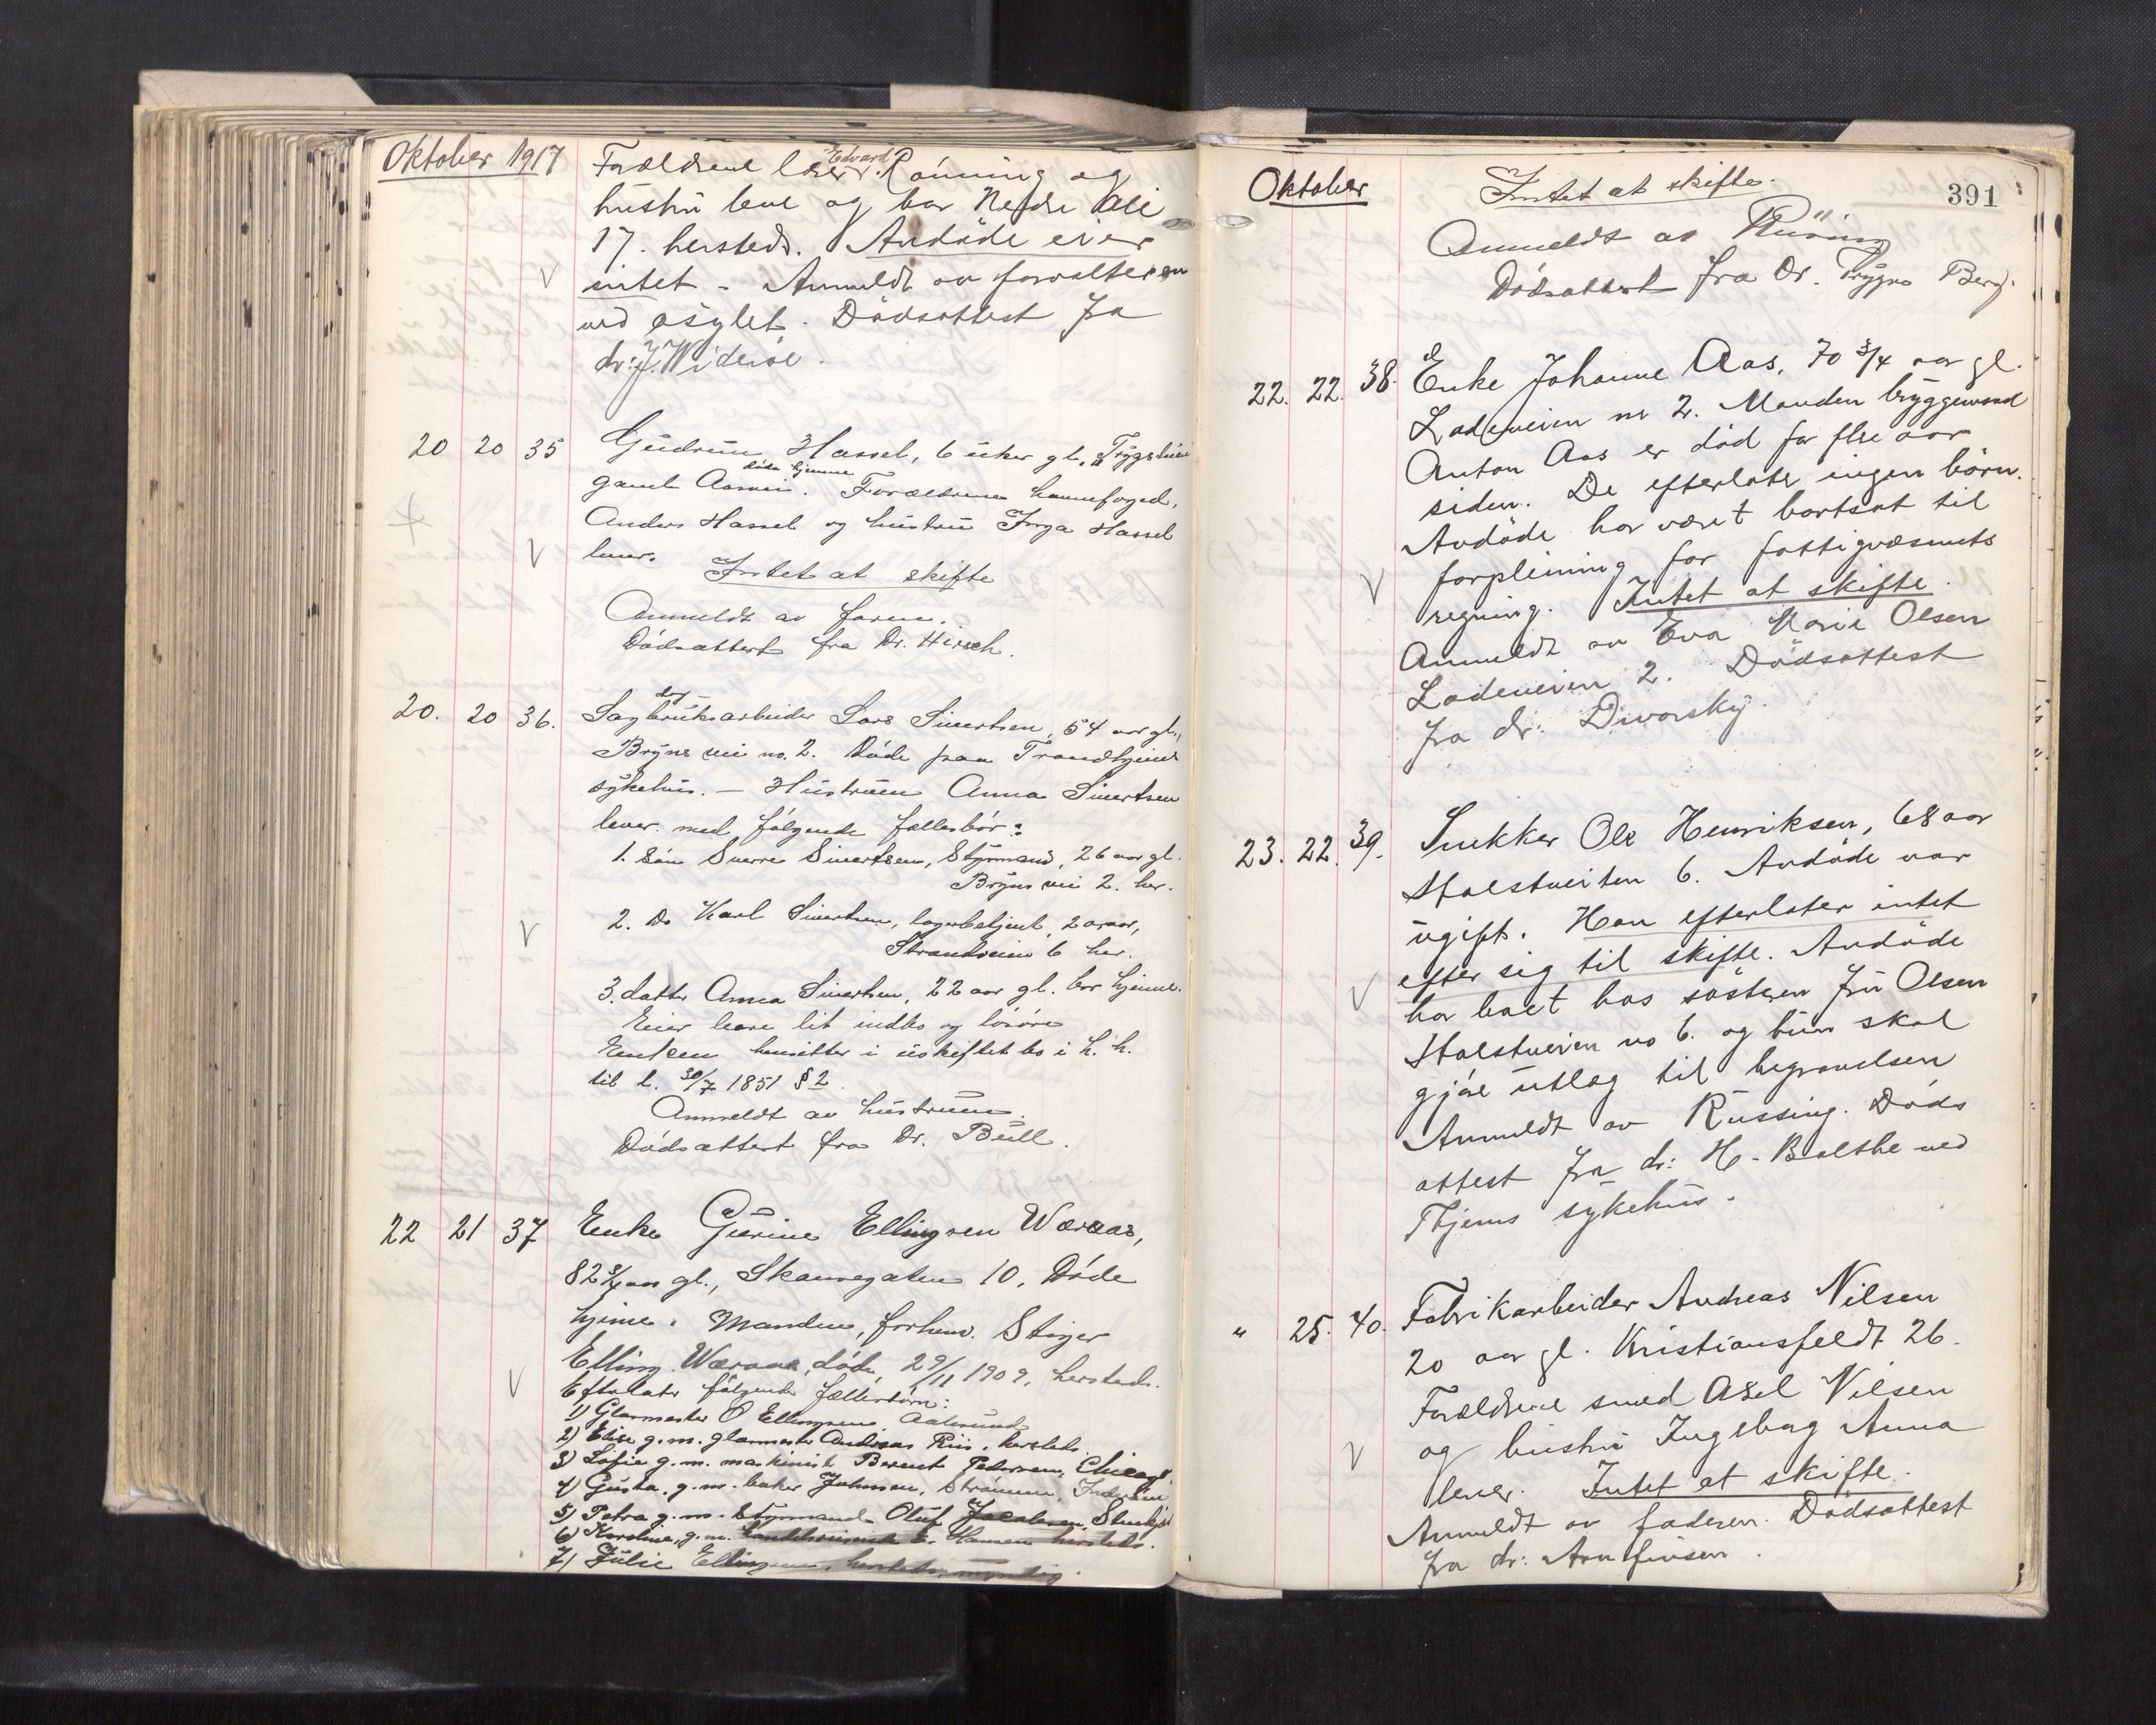 Oktober 1917
Forældrene løser Edvard Rønning og
hustru leve og bor Nedre Allé
17. hersteds. Avdøde eier
intet - Anmeldt av forvalteren
ved asylet. Dødsattest fra
dr: J. Widerøe.
20 20 35 Gudrun Hassel, 6 uker gl.,
gamle Aasvei. døde hjemme Forældrene havnefoged,
Anders Hassel og hustru Inga Hassel
lever. Intet at skifte
Anmeldt av faren.
Dødsattest fra Dr. Hirsch.
20. 20 36. Sagbruksarbeider Lars Sivertsen, 54 aar gl.,
Bryns vei no. 2. Døde paa Trondhjems
sykehus. — Hustruen Anna Sivertsen
lever med følgende fællesbør:
1. Søn Sverre Sivertsen, Styrmand, 26 aar gl.
Bryns vei 2. her.
2. Do Karl Sivertsen, lagerbetjent, 20 aar,
Strandveien 6 her.
3. datter Anna Sivertsen, 22 aar gl. bor hjemme.
Eier bare lit indbo og løsøre
Enken hensitter i uskiftet bo i h. h.
til l. 30/7 1851 § 2.
Anmeldt av hustruen.
Dødsattest fra Dr. Bull.
22 21 37 Enke Gurine Ellingsen Wæraas,
82 3/4 aar gl., Skansegaten 10. Døde
hjeme. Manden, forhenv. Stiger
Elling Wæraas, døde 29/11 1909, hersteds.
Efterlater følgende fællesbørn:
1) Glasmester O Ellingsen, Aalesund
2) Elise g. m. glasmester Andreas Riis, hersteds.
3) Sofie g. m. maskinist Berent Pedersen, Chicago.
4) Gusta, g. m. baker Johnsen, Strømmen, Inderøen
5) Petra g. m. Styrmand Oluf Jacobsen,
6) Karoline, g. m. E. Hansen hersteds.
7) Julie Ellingsen, hersteds, myndig.
Oktober 391
Intet at skifte.
Anmeldt av
Dødsattest fra Dr. Trygve Berg.
22. 22. 38. Enke Johanne Aas, 70 3/4 aar gl.
Ladeveien nr 2. Manden bryggemand
Anton Aas er død for flere aar
siden. De efterlater ingen børn.
Avdøde har været bortsat til
forpleining for fattigvæsenets
regning. Intet at skifte.
Anmeldt av Eva Marie Olsen
Ladeveien 2. Dødsattest
fra dr: Diworsky.
23. 22. 39. Snekker Ole Henriksen, 68 aar
Stolstveiten 6. Avdøde var
ugift. Han efterlater intet
efter sig til skifte. Avdøde
har boet hos søsteren fru Olsen
Stolstveiten no 6. og hun skal
gjøre utlæg til begravelsen
Anmeldt av Russing. Døds
attest fra dr: H. Balthe ved
Thjems sykehus.
" 25. 40. Fabrikarbeider Andreas Nilsen
20 aar gl. Kristiansfeldt 26.
Forældrene smed Axel Nilsen
og hustru Ingeborg Anna
lever. Intet at skifte.
Anmeldt av faderen. Dødsattest
fra dr: Arnfinsen.